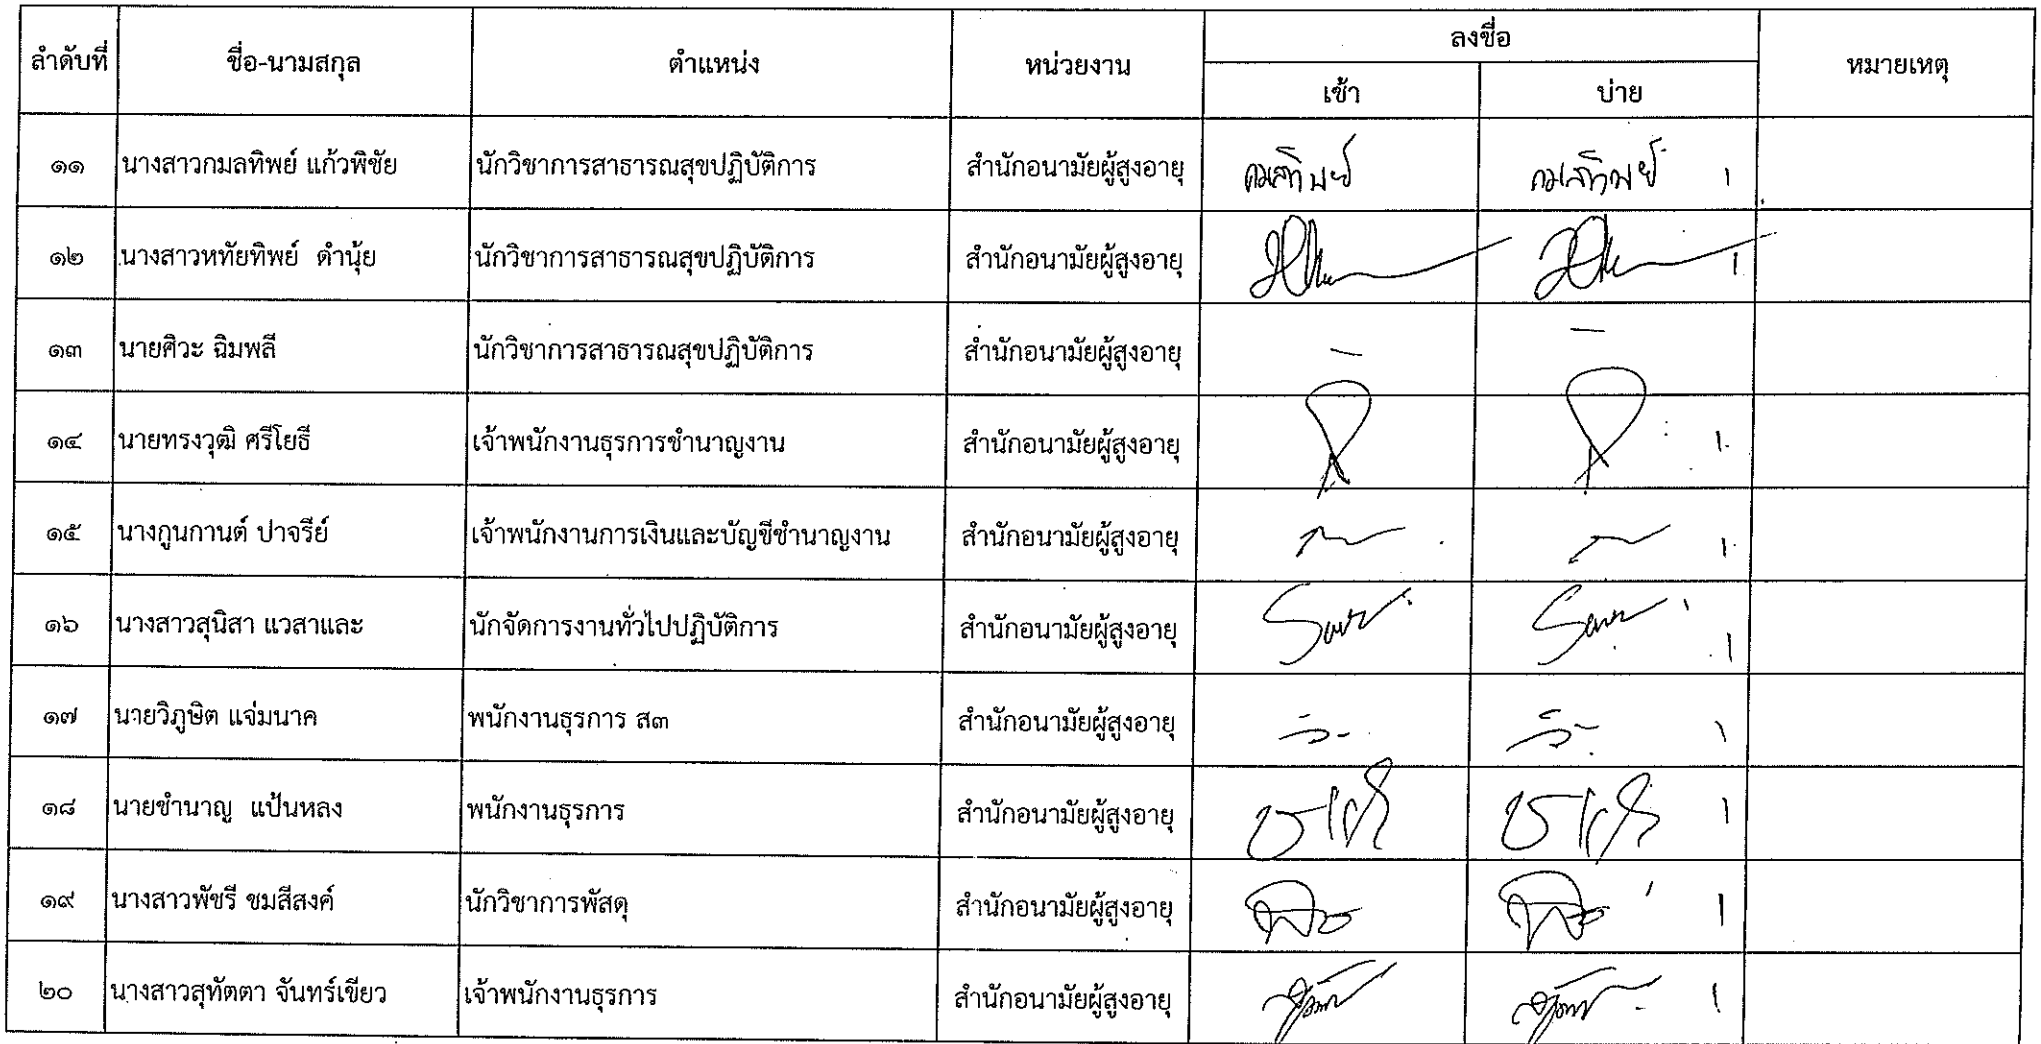 ลำดับที่ ชื่อ-นามสกุล ตำแหน่ง หน่วยงาน ลงชื่อ หมายเหตุ
เช้า บ่าย
๑๑ นางสาวกมลทิพย์ แก้วพิชัย นักวิชาการสาธารณสุขปฏิบัติการ สำนักอนามัยผู้สูงอายุ กมลทิพย์ กมลทิพย์
๑๒ นางสาวหทัยทิพย์ ดำนุ้ย นักวิชาการสาธารณสุขปฏิบัติการ สำนักอนามัยผู้สูงอายุ
๑๓ นายศิวะ ฉิมพลี นักวิชาการสาธารณสุขปฏิบัติการ สำนักอนามัยผู้สูงอายุ - -
๑๔ นายทรงวุฒิ ศรีโยธี เจ้าพนักงานธุรการชำนาญงาน สำนักอนามัยผู้สูงอายุ
๑๕ นางกูนกานต์ ปาจรีย์ เจ้าพนักงานการเงินและบัญชีชำนาญงาน สำนักอนามัยผู้สูงอายุ
๑๖ นางสาวสุนิสา แวสาและ นักจัดการงานทั่วไปปฏิบัติการ สำนักอนามัยผู้สูงอายุ
๑๗ นายวิภูษิต แจ่มนาค พนักงานธุรการ ส๓ สำนักอนามัยผู้สูงอายุ
๑๘ นายชำนาญ แป้นหลง พนักงานธุรการ สำนักอนามัยผู้สูงอายุ
๑๙ นางสาวพัชรี ชมสีสงค์ นักวิชาการพัสดุ สำนักอนามัยผู้สูงอายุ
๒๐ นางสาวสุทัตตา จันทร์เขียว เจ้าพนักงานธุรการ สำนักอนามัยผู้สูงอายุ